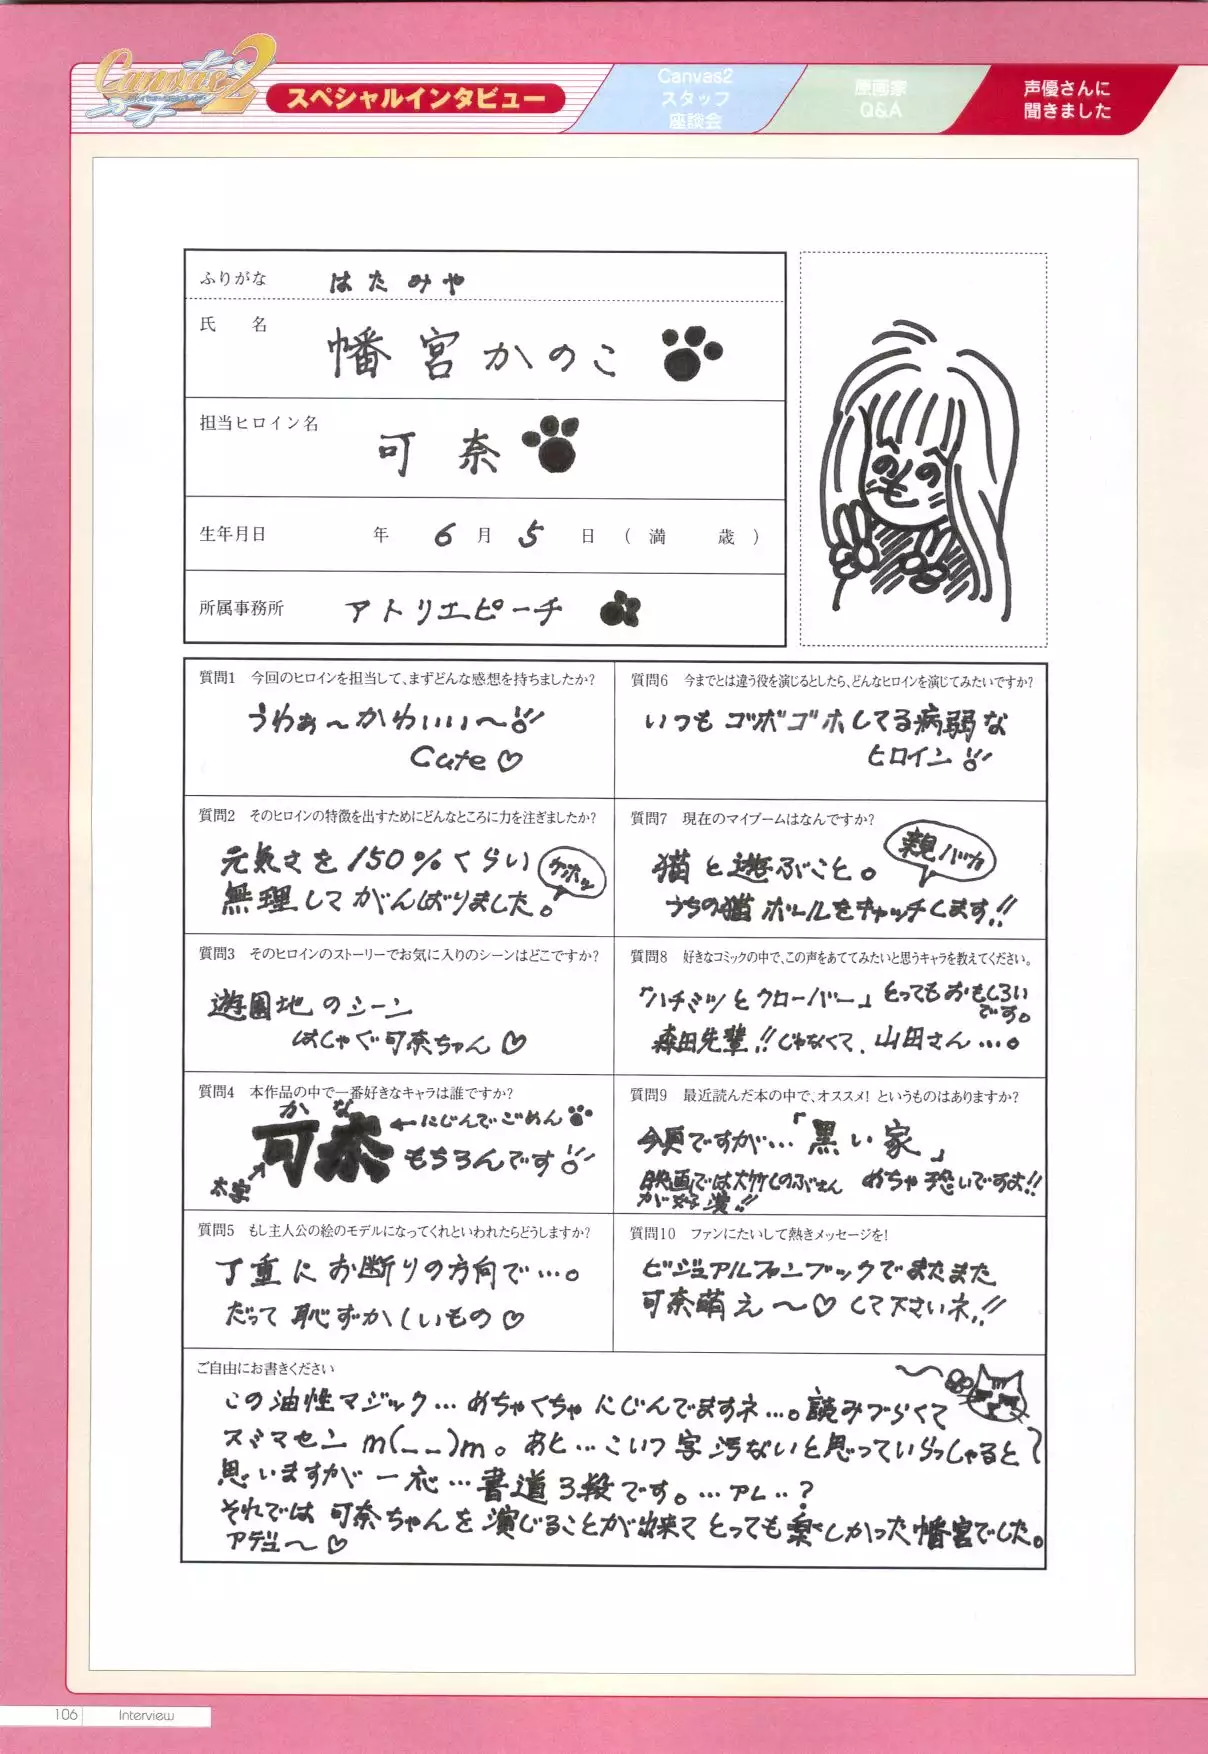 Canvas2
スペシャルインタビュー
Canvas2
スタッフ
座談会
原画家
Q&A
声優さんに
聞きました
ふりがな はたみや
氏 名 幡宮かのこ
担当ヒロイン名 可奈
生年月日 年 6月 5日 (満 歳)
所属事務所 アトリエピーチ
質問1 今回のヒロインを担当して、まずどんな感想を持ちましたか?
うわぁ～かわいい～!!
Cute♡
質問2 そのヒロインの特徴を出すためにどんなところに力を注ぎましたか?
元気さを150%くらい
無理してがんばりました。
ケホッ
質問3 そのヒロインのストーリーでお気に入りのシーンはどこですか?
遊園地のシーン
はしゃぐ可奈ちゃん♡
質問4 本作品の中で一番好きなキャラは誰ですか?
かな
可奈 ←にじんでごめん
もちろんです!!
太字
質問5 もし主人公の絵のモデルになってくれといわれたらどうしますか?
丁重にお断りの方向で…。
だって恥ずかしいもの♡
質問6 今までとは違う役を演じるとしたら、どんなヒロインを演じてみたいですか?
いつもゴホゴホしてる病弱な
ヒロイン!!
質問7 現在のマイブームはなんですか?
親バカ
猫と遊ぶこと。
うちの猫ボールをキャッチします!!
質問8 好きなコミックの中で、この声をあててみたいと思うキャラを教えてください。
「ハチミツとクローバー」とってもおもしろい
です。
森田先輩!!じゃなくて、山田さん…。
質問9 最近読んだ本の中で、オススメ! というものはありますか?
今更ですが…「黒い家」
映画では大竹しのぶさん めちゃ恐いですよ!!
が好演!!
質問10 ファンにたいして熱きメッセージを!
ビジュアルファンブックでまたまた
可奈萌え～♡して下さいネ!!
ご自由にお書きください
この油性マジック…めちゃくちゃにじんでますネ…。読みづらくて
スミマセンm(__)m。あと…こいつ字汚ないと思っていらっしゃると
思いますが一応…書道3段です。…アレ‥?
それでは可奈ちゃんを演じることが出来てとっても楽しかった幡宮でした。
アデュ～♡
106 Interview